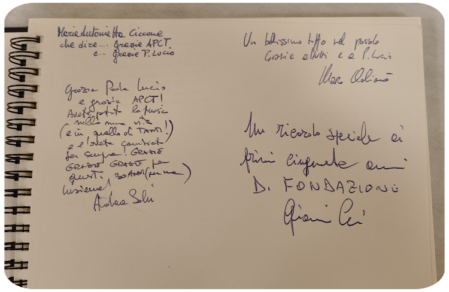 Maria Antonietta Ciccone
che dice... grazie APCT
e... grazie P. Lucio
Grazie Padre Lucio
e grazie APCT!
sulla mia vita
(e in quella di TANTI!)
e l'
per sempre! GRAZIE
GRAZIE GRAZIE per
questi 30 ANNI
insieme!
Andrea
Un bellissimo tuffo nel passato
Grazie a tutti e a P. Lucio
Un ricordo speciale ai
primi cinquanta anni
DI FONDAZIONE